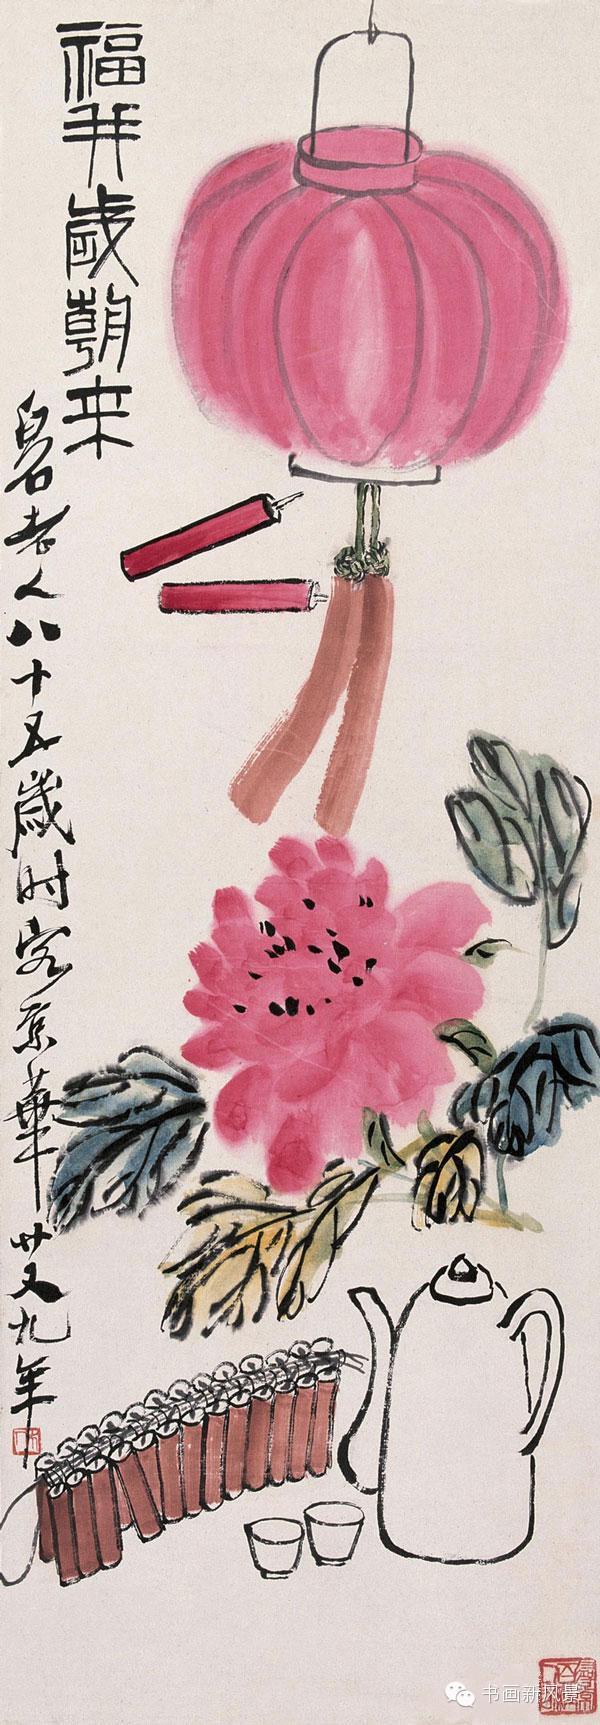 福并歲朝来
白石老人八十五歲时客京華廿又九年
书画新风景